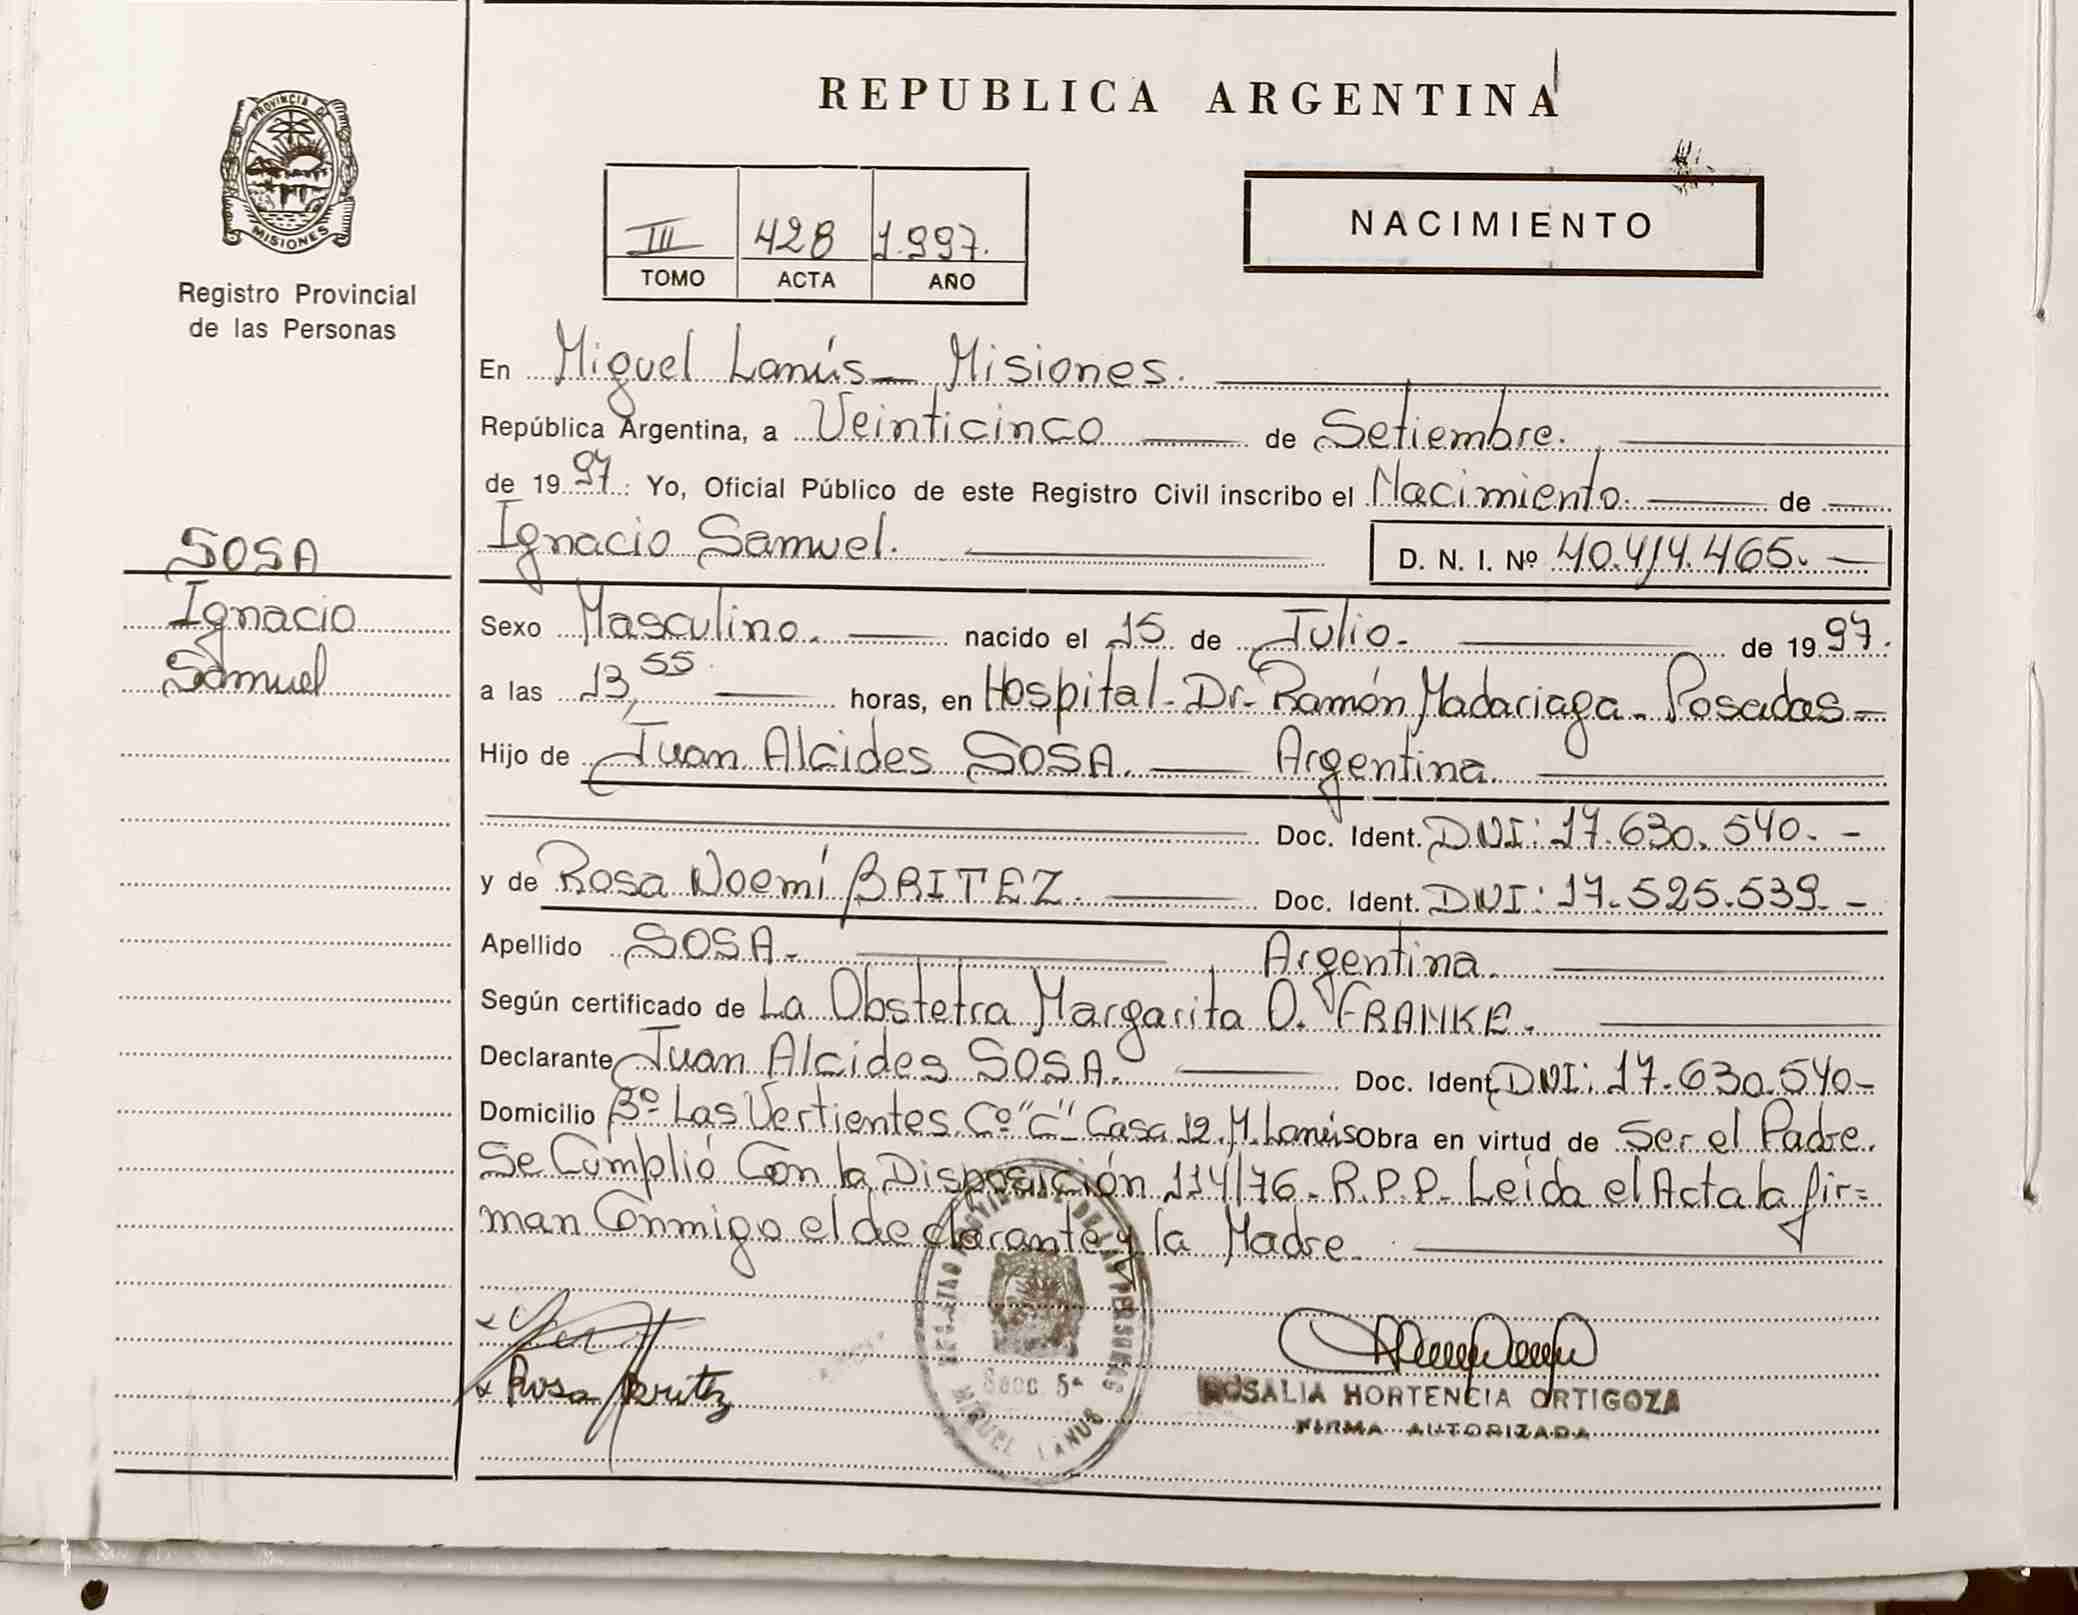 PROVINCIA DE
MISIONES
Registro Provincial
de las Personas
SOSA
Ignacio
Samuel
REPUBLICA ARGENTINA
III 428 1.997.
TOMO ACTA AÑO
NACIMIENTO
En Miguel Lanús - Misiones.
República Argentina, a Veinticinco de Setiembre.
de 1997. Yo, Oficial Público de este Registro Civil inscribo el Nacimiento. de
Ignacio Samuel. D. N. I. Nº 40.414.465. -
Sexo Masculino. nacido el 15 de Julio. de 1997.
a las 13,55 horas, en Hospital - Dr. Ramón Madariaga - Posadas -
Hijo de Juan Alcides SOSA. Argentina.
Doc. Ident. DNI: 17.630.540. -
y de Rosa Noemí BRITEZ. Doc. Ident. DNI: 17.525.539. -
Apellido SOSA. Argentina.
Según certificado de La Obstetra Margarita O. FRANKE.
Declarante Juan Alcides SOSA. Doc. Ident. DNI: 17.630.540 -
Domicilio Bº Las Vertientes Cº "C" Casa 12. M. Lanús obra en virtud de Ser el Padre.
Se Cumplió Con la Disposición 114/76 - R.P.P. Leída el Acta la fir=
man Conmigo el declarante y la Madre.
Rosa Britez
Secc. 5ª
MIGUEL LANUS
ROSALIA HORTENCIA ORTIGOZA
FIRMA AUTORIZADA